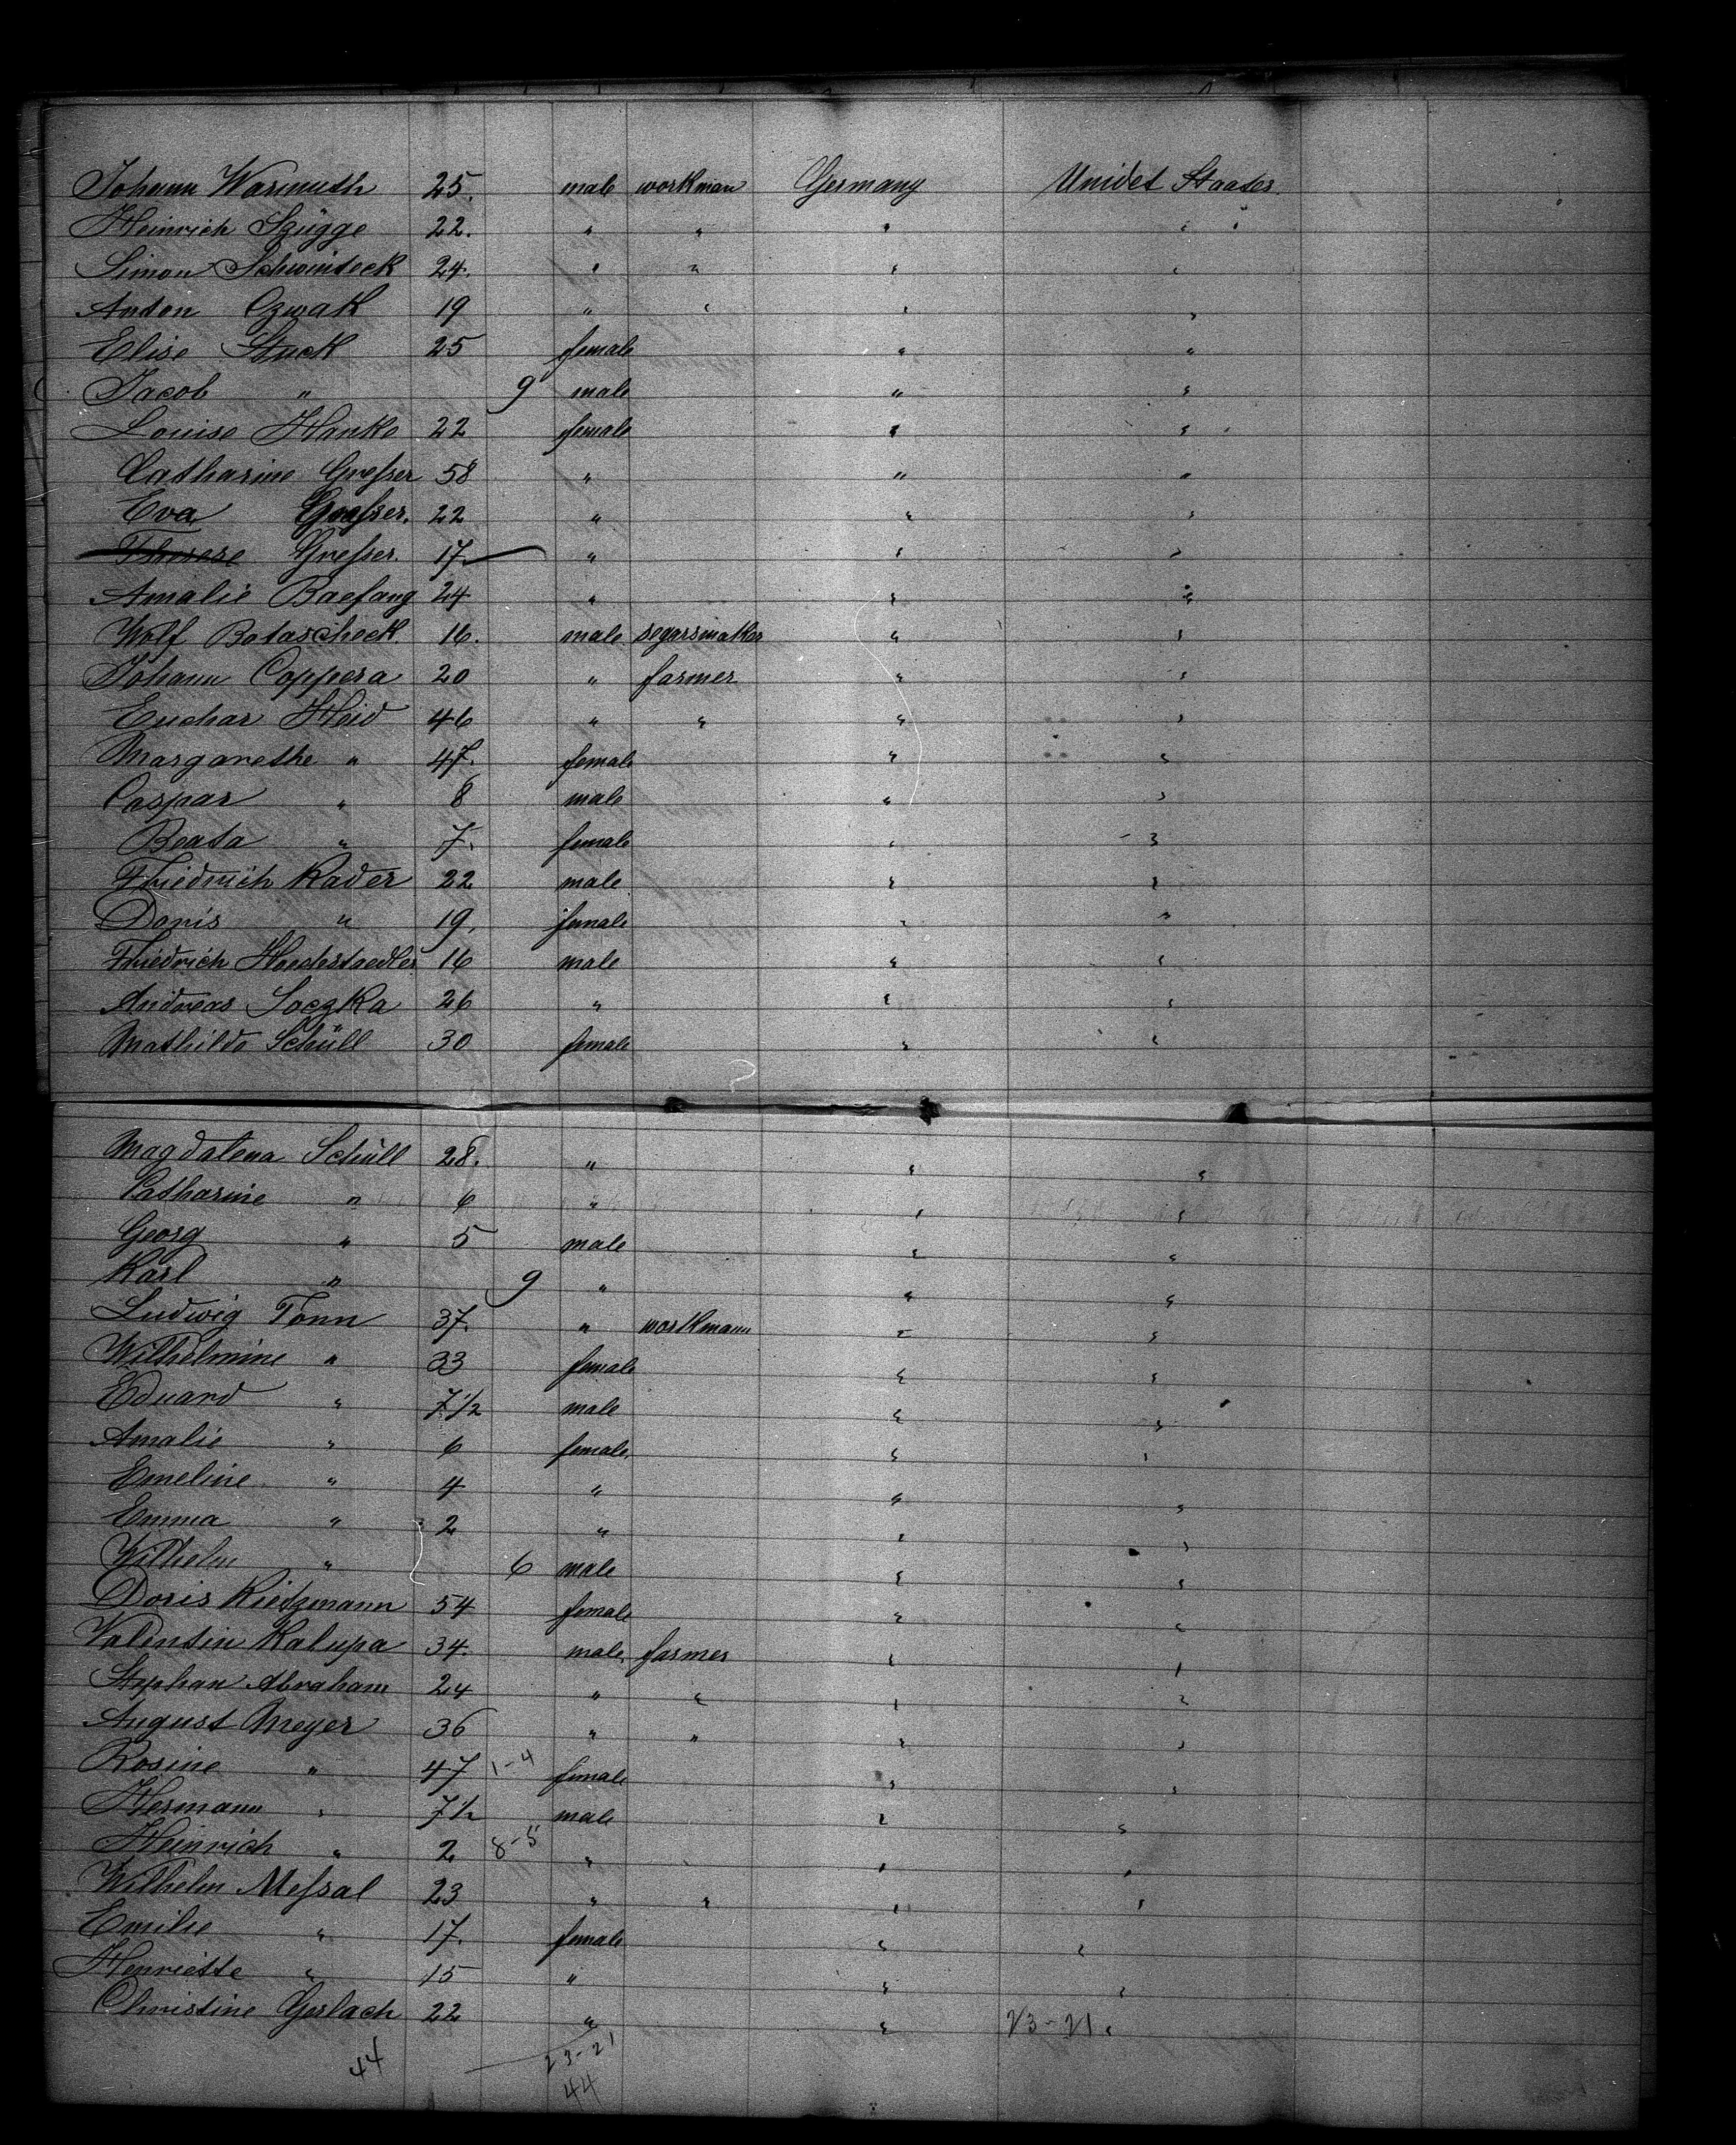 Johann Warmuth 25. male workman Germany Unidet Staates.
Heinrich Szügge 22. " " " "
Simon Schwinteck 24. " " " "
Anton Czwak 19 " " " "
Elise Stuck 25 female " "
Jacob " 9 male " "
Louise Hanke 22 female " "
Catharine Gneſser 58 " " "
Eva Gneſser. 22 " " "
Therese Gneſser. 17 " " "
Amalie Baefang 24 " " "
Wolf Botascheck 16. male segarsmaker " "
Johann Coppera 20 " farmer " "
Euchar Heid 46 " " " "
Margarethe " 47. female " "
Caspar " 8 male " "
Beata " 7. female " "
Friedrich Rader 22 male " "
Doris " 19, female " "
Friedrich Hoechstaedter 16 male " "
Andreas Soczka 26 " " "
Mathilde Schüll 30 female " "
Magdalena Schüll 28. " " "
Catharine " 6 " " "
Georg " 5 male " "
Karl " 9 " " "
Ludwig Tonn 37. " workmann " "
Wilhelmine " 33 female " "
Eduard " 7 1/2 male " "
Amalie " 6 female. " "
Emeline " 4 " " "
Emma " 2 " " "
Wilhelm " 6 male " "
Doris Rietzmann 54 female " "
Valentin Kalupa 34. male. farmer " "
Stephan Abraham 24 " " " "
August Meyer 36 " " " "
Rosine " 47 1-4 female " "
Hermann " 7 1/2 male " "
Heinrich " 2 8-5 " " "
Wilhelm Meſsal 23 " " " "
Emilie " 17. female " "
Henriette " 15 " " "
Christine Gerlach 22 " " 23-21 "
44 23-21
44